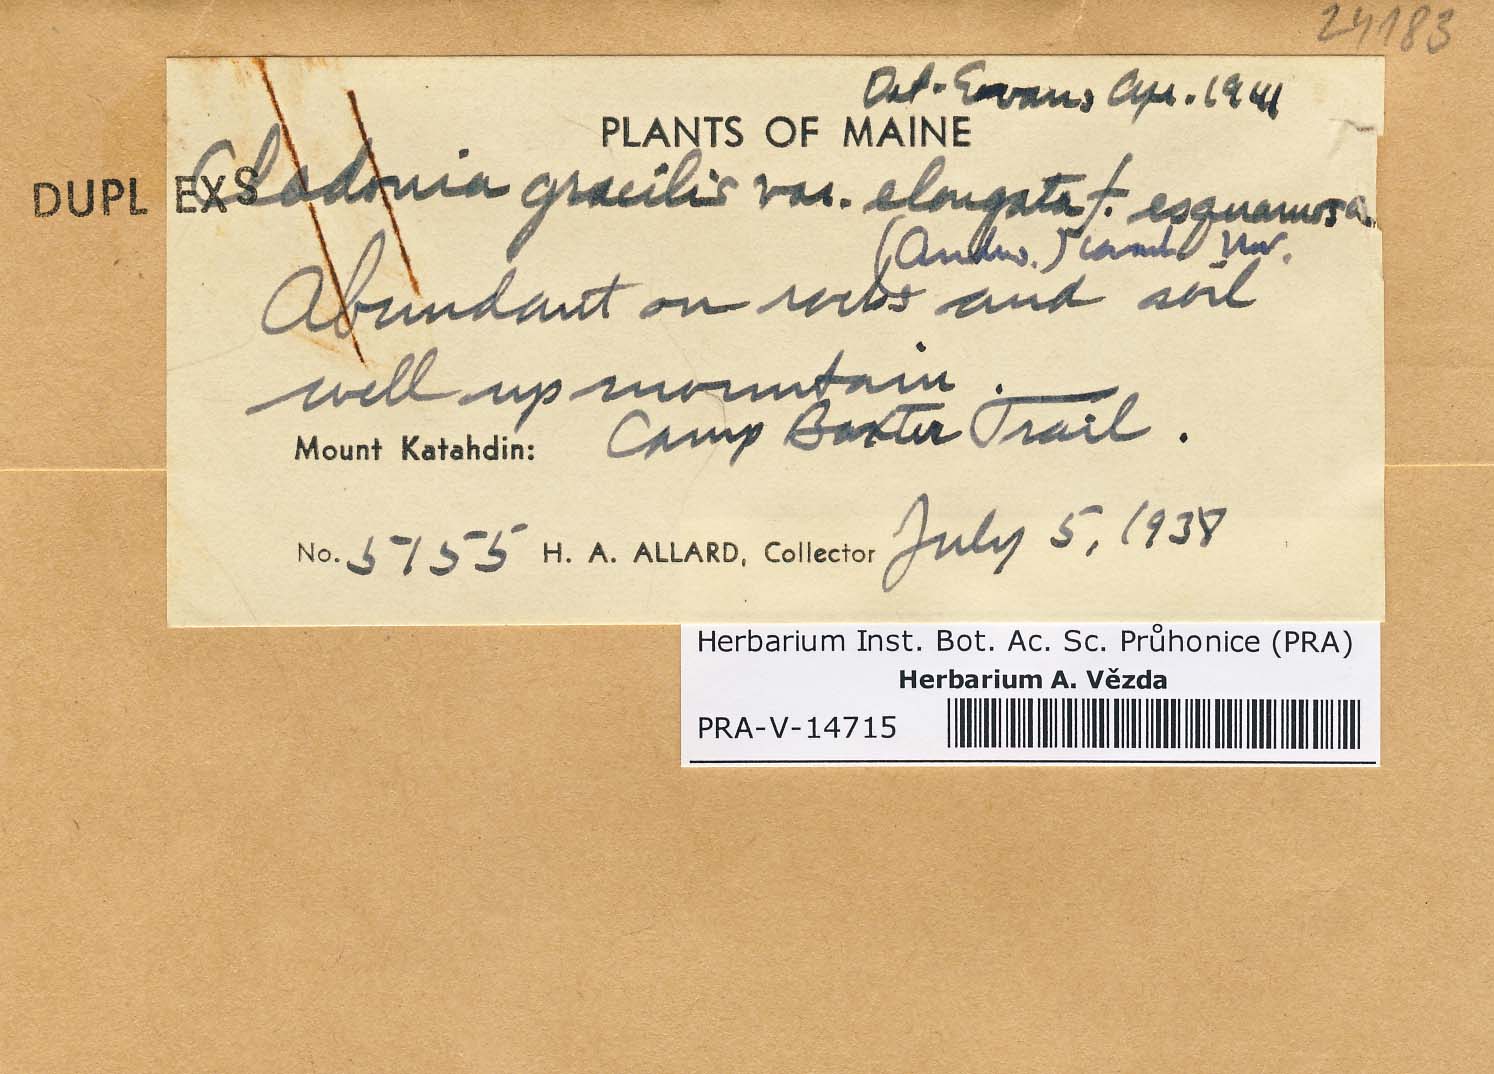 24183
Det. Evans Apr. 1941
PLANTS OF MAINE
DUPL EXS
Cladonia gracilis var. elongata f. esquamosa
(Andw.) comb. nov.
Abundant on rocks and soil
well up mountain.
Mount Katahdin: Camp Baxter Trail.
No. 5155 H. A. ALLARD, Collector July 5, 1938
Herbarium Inst. Bot. Ac. Sc. Průhonice (PRA)
Herbarium A. Vězda
PRA-V-14715